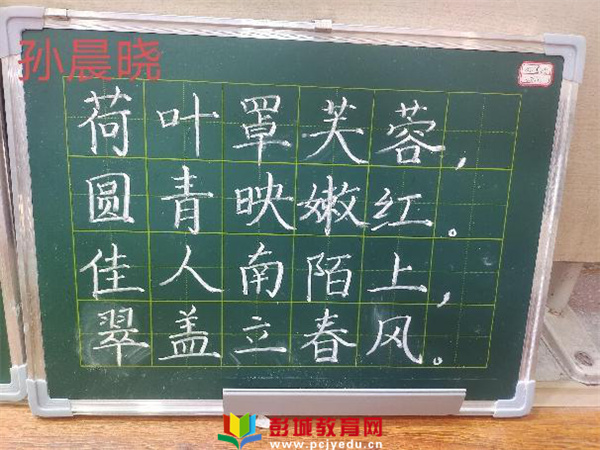 孙晨晓
荷叶罩芙蓉，
圆青映嫩红。
佳人南陌上，
翠盖立春风。
彭城教育网
www.pcjyedu.cn